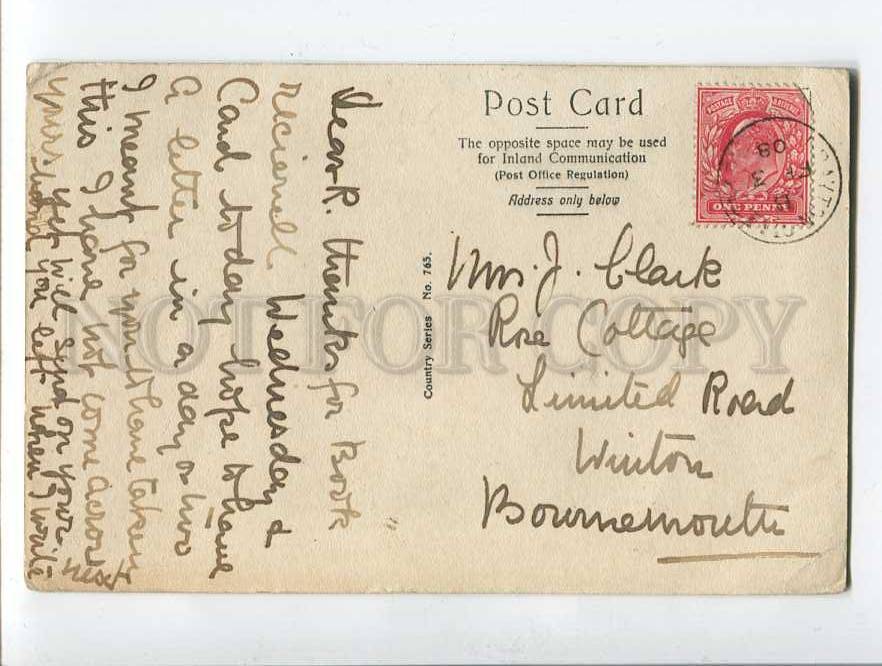 Post Card
The opposite space may be used
for Inland Communication
(Post Office Regulation)
Address only below
POSTAGE & REVENUE
ONE PENNY
08
Country Series No. 765.
Mrs. J. Clark
Rose Cottage
Limited Road
Winton
Bournemouth
Dear R. thanks for Book
recieved Wednesday &
Card today hope to have
a letter in a day or two
I meant for you to have taken
this I have not come across
yours yet will send on your
you left when I write
NOT FOR COPY